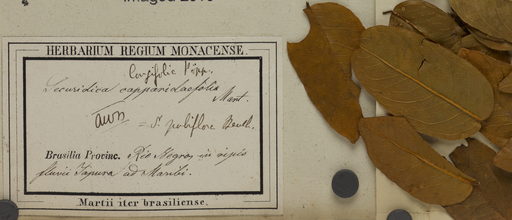 HERBARIUM REGIUM MONACENSE.
longifolia Pöpp.
Securidica capparidaefolia
Mart.
= S. pubiflora Benth.
Brasilia Provinc. Rio Negro, in ripis
fluvii Japura ad Maribi.
Martii iter brasiliense.